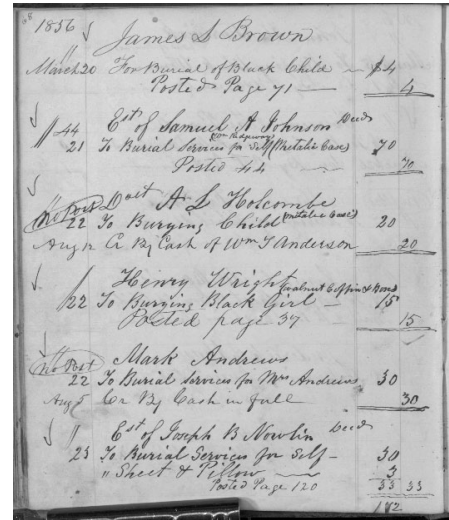 68
1856
James S Brown
March 20 For Burial of Black Child — $4
Posted Page 71 — 4
" 44 Est of Samuel A Johnson Decd
21 To Burial Services for Self (Metalic Case) 70
Posted 44 — 70
"
No Post Doct A S Holcombe
22 To Burying Child (metalic Case) 20
Aug 12 Cr By Cash of Wm T Anderson 20
" Henry Wright (walnut Coffin & Box)
22 To Burying Black Girl — 15
Posted page 37 15
"
No Post Mark Andrews
22 To Burial Services for Mrs Andrews 30
Aug 5 Cr By Cash in full 30
" Est of Joseph B Nowlin Decd
23 To Burial Services for Self — 30
" Sheet & Pillow — 3
Posted Page 120 33 33
172